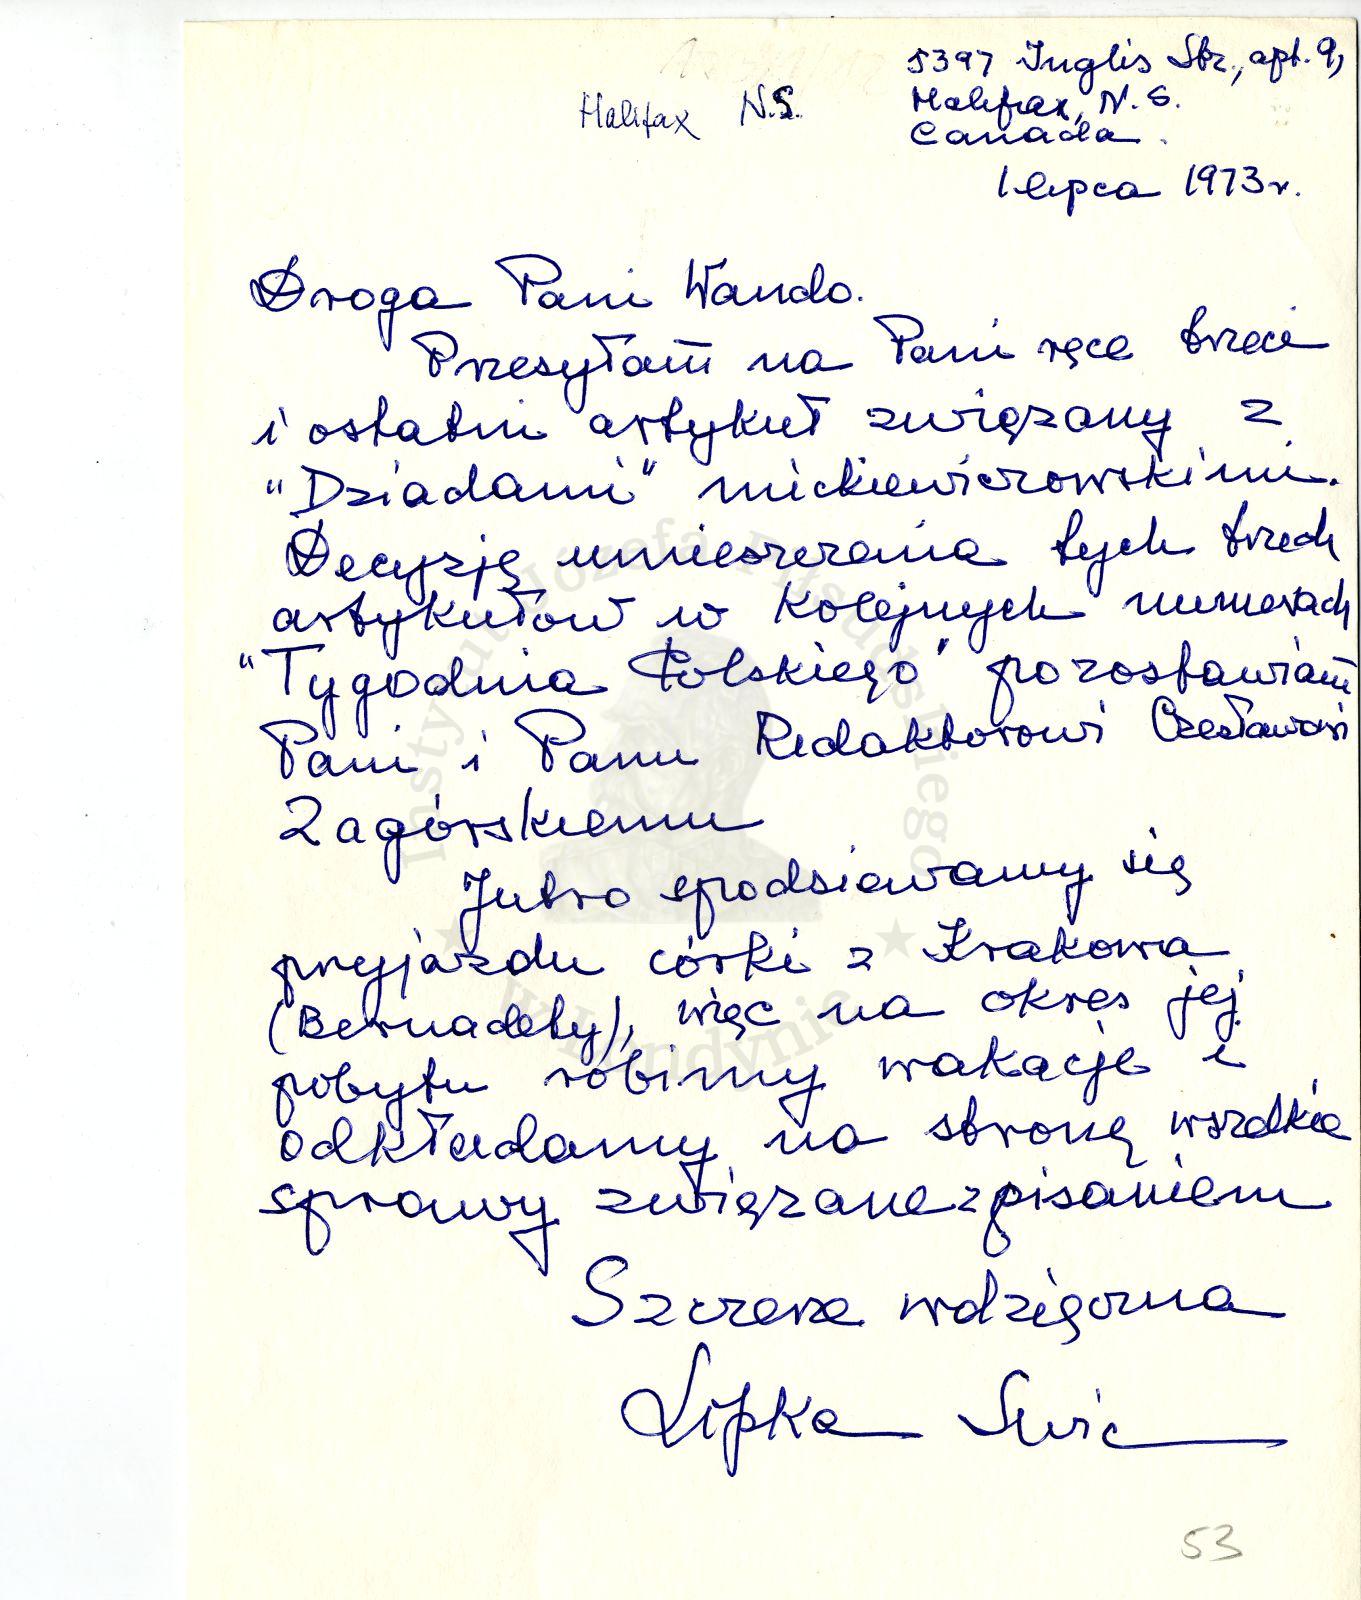 5397 Inglis Str., apt. 9,
Halifax N.S.
Halifax, N. S.
Canada.
1 lipca 1973 r.
Droga Pani Wando.
Przesyłam na Pani ręce trzeci
i ostatni artykuł związany z
"Dziadami" mickiewiczowskimi.
Decyzję umieszczenia tych trzech
artykułów w kolejnych numerach
"Tygodnia Polskiego" pozostawiam
Pani i Panu Redaktorowi Czesławowi
Zagórskiemu
Jutro spodziewamy się
przyjazdu córki z Krakowa
(Bernadety), więc na okres jej
pobytu robimy wakacje i
odkładamy na stronę wszelkie
sprawy związane z pisaniem
Szczerze wdzięczna
Lipka
53
Instytut Józefa Piłsudskiego
w Londynie